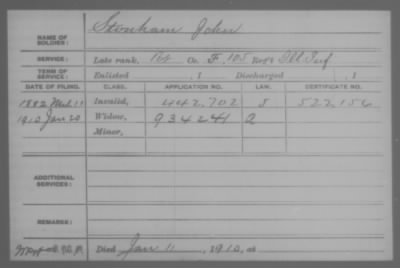 NAME OF SOLDIER: Stonham John
SERVICE: Late rank, Pvt Co. F, 105 Reg't Ill Inf.
TERM OF SERVICE: Enlisted , 1 Discharged , 1
DATE OF FILING. CLASS. APPLICATION NO. LAW. CERTIFICATE NO.
1882 Mch 11 Invalid, 442,702 522,156
1910 Jan 20 Widow, 934241 a
Minor,
ADDITIONAL SERVICES:
REMARKS:
Died Jan 11, 1910, at